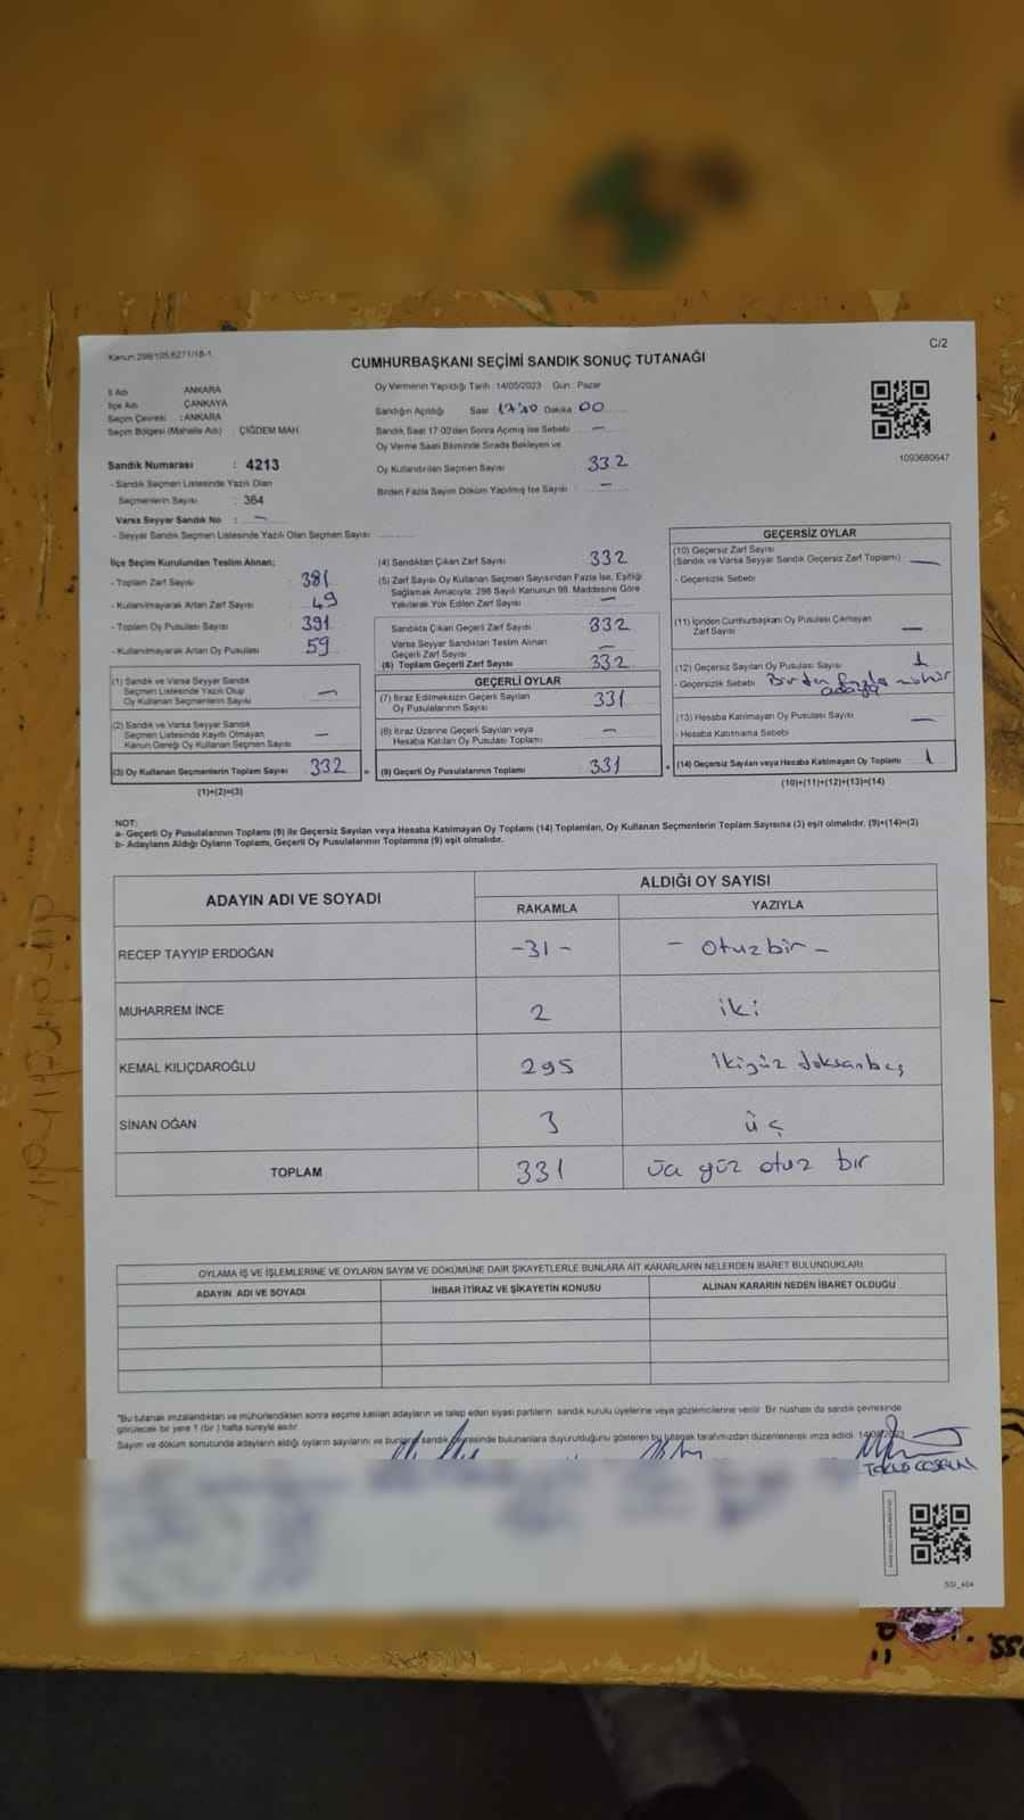 C/2
Kanun:298/105,6271/18-1
CUMHURBAŞKANI SEÇİMİ SANDIK SONUÇ TUTANAĞI
İl Adı ANKARA
İlçe Adı ÇANKAYA
Seçim Çevresi : ANKARA
Seçim Bölgesi (Mahalle Adı) : ÇİĞDEM MAH.
Oy Vermenin Yapıldığı Tarih : 14/05/2023 Gün : Pazar
Sandığın Açıldığı Saat Dakika 00
Sandık Saat 17:00'den Sonra Açılmış İse Sebebi —
Oy Verme Saati Bitiminde Sırada Bekleyen ve
Oy Kullandırılan Seçmen Sayısı 332
Birden Fazla Sayım Döküm Yapılmış İse Sayısı : —
1093680647
Sandık Numarası : 4213
- Sandık Seçmen Listesinde Yazılı Olan
Seçmenlerin Sayısı : 364
Varsa Seyyar Sandık No : —
- Seyyar Sandık Seçmen Listesinde Yazılı Olan Seçmen Sayısı
İlçe Seçim Kurulundan Teslim Alınan;
- Toplam Zarf Sayısı 381
- Kullanılmayarak Artan Zarf Sayısı 49
- Toplam Oy Pusulası Sayısı 391
- Kullanılmayarak Artan Oy Pusulası 59
(1) Sandık ve Varsa Seyyar Sandık
Seçmen Listesinde Yazılı Olup
Oy Kullanan Seçmenlerin Sayısı —
(2) Sandık ve Varsa Seyyar Sandık
Seçmen Listesinde Kayıtlı Olmayan
Kanun Gereği Oy Kullanan Seçmen Sayısı —
(3) Oy Kullanan Seçmenlerin Toplam Sayısı 332
(1)+(2)=(3)
(4) Sandıktan Çıkan Zarf Sayısı 332
(5) Zarf Sayısı Oy Kullanan Seçmen Sayısından Fazla İse, Eşitliği
Sağlamak Amacıyla; 298 Sayılı Kanunun 98. Maddesine Göre
Yakılarak Yok Edilen Zarf Sayısı —
Sandıkta Çıkan Geçerli Zarf Sayısı 332
Varsa Seyyar Sandıktan Teslim Alınan
Geçerli Zarf Sayısı —
(6) Toplam Geçerli Zarf Sayısı 332
GEÇERLİ OYLAR
(7) İtiraz Edilmeksizin Geçerli Sayılan
Oy Pusulalarının Sayısı 331
(8) İtiraz Üzerine Geçerli Sayılan veya
Hesaba Katılan Oy Pusulası Toplamı —
= (9) Geçerli Oy Pusulalarının Toplamı 331
GEÇERSİZ OYLAR
(10) Geçersiz Zarf Sayısı
(Sandık ve Varsa Seyyar Sandık Geçersiz Zarf Toplamı) —
- Geçersizlik Sebebi
(11) İçinden Cumhurbaşkanı Oy Pusulası Çıkmayan
Zarf Sayısı —
(12) Geçersiz Sayılan Oy Pusulası Sayısı 1
- Geçersizlik Sebebi Birden fazla mühür
adaya
(13) Hesaba Katılmayan Oy Pusulası Sayısı —
- Hesaba Katılmama Sebebi
+ (14) Geçersiz Sayılan veya Hesaba Katılmayan Oy Toplamı 1
(10)+(11)+(12)+(13)=(14)
NOT:
a- Geçerli Oy Pusulalarının Toplamı (9) ile Geçersiz Sayılan veya Hesaba Katılmayan Oy Toplamı (14) Toplamları, Oy Kullanan Seçmenlerin Toplam Sayısına (3) eşit olmalıdır. (9)+(14)=(3)
b- Adayların Aldığı Oyların Toplamı, Geçerli Oy Pusulalarının Toplamına (9) eşit olmalıdır.
ADAYIN ADI VE SOYADI ALDIĞI OY SAYISI
RAKAMLA YAZIYLA
RECEP TAYYIP ERDOĞAN -31- - Otuzbir -
MUHARREM İNCE 2 iki
KEMAL KILIÇDAROĞLU 295 ikiyüz doksanbeş
SİNAN OĞAN 3 üç
TOPLAM 331 üç yüz otuz bir
OYLAMA İŞ VE İŞLEMLERİNE VE OYLARIN SAYIM VE DÖKÜMÜNE DAİR ŞİKAYETLERLE BUNLARA AİT KARARLARIN NELERDEN İBARET BULUNDUKLARI
ADAYIN ADI VE SOYADI İHBAR İTİRAZ VE ŞİKAYETİN KONUSU ALINAN KARARIN NEDEN İBARET OLDUĞU
"Bu tutanak imzalandıktan ve mühürlendikten sonra seçime katılan adayların ve talep eden siyasi partilerin sandık kurulu üyelerine veya gözlemcilerine verilir. Bir nüshası da sandık çevresinde
görülecek bir yere 1 (bir ) hafta süreyle asılır.
Sayım ve döküm sonutunda adayların aldığı oyların sayılarını ve sandık bulunanlara duyurulduğunu gösteren bu tutanak tarafımızdan düzenlenerek imza edildi.